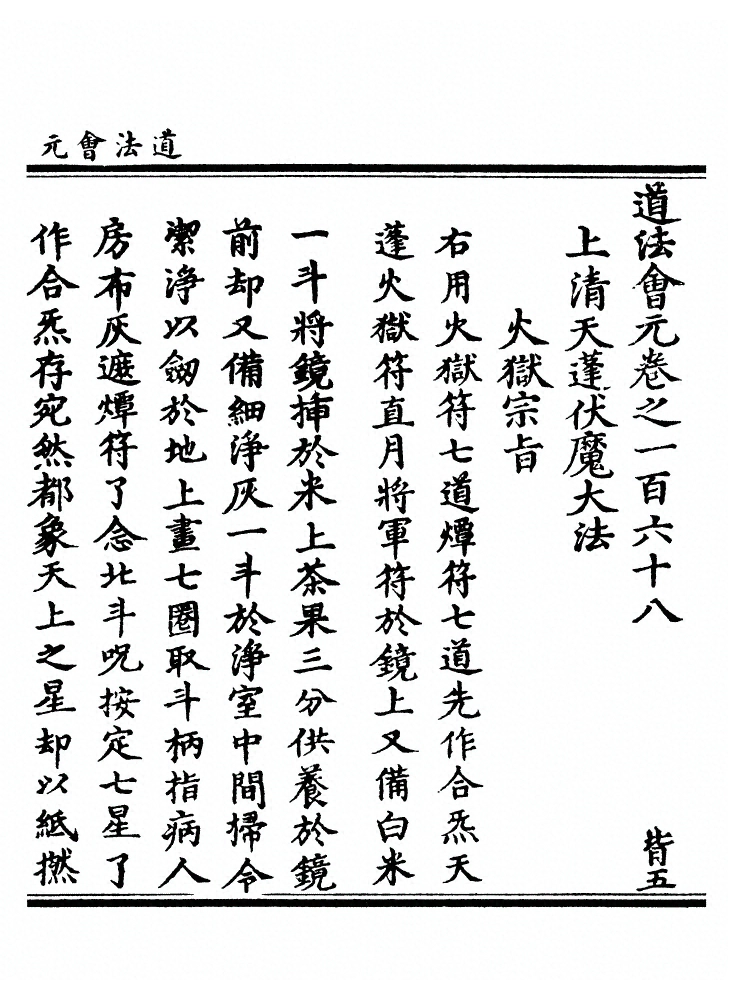 道法會元
道法會元卷之一百六十八
皆五
上清天蓬伏魔大法
火獄宗旨
右用火獄符七道燂符七道先作合炁天
蓬火獄符直月將軍符於鏡上又備白米
一斗將鏡揷於米上茶果三分供養於鏡
前却又備細淨灰一斗於淨室中間掃令
潔淨以劒於地上畫七圈取斗柄指病人
房布灰遮燂符了念北斗呪按定七星了
作合炁存宛然都象天上之星却以紙撚